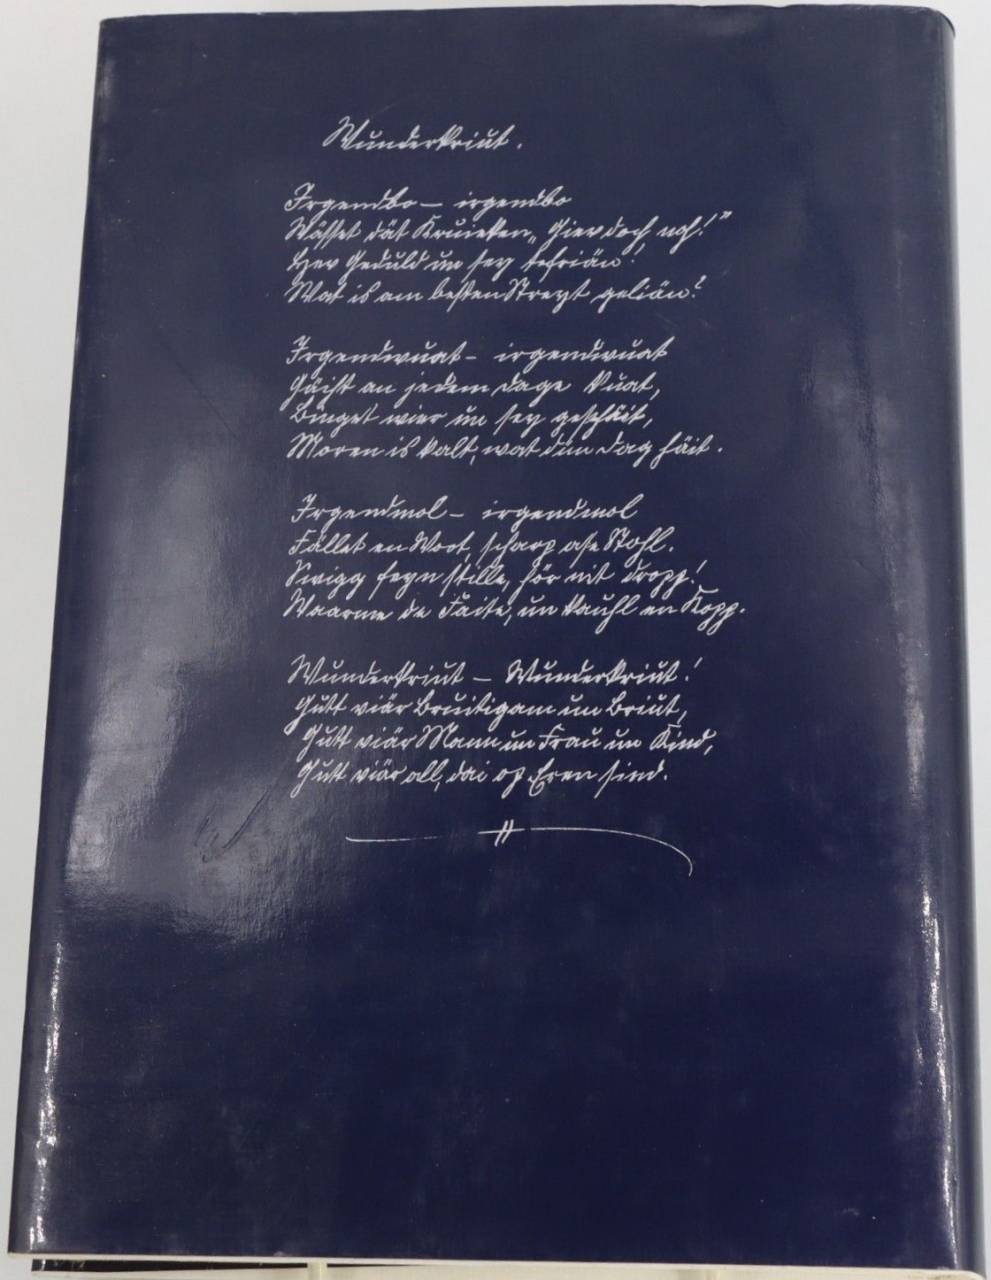 Wunderkriut.
Irgendbo – irgendbo
Wässet dät Kruieken „Giev doch no!"
Hev Geduld un sey tefriän!
Wat is am besten Streyt geliän?
Irgendwuat – irgendwuat
Gäiht an jedem Dage kuat,
Binget wier un sey geschäit,
Moren is kalt, wat diin Dag häit.
Irgendmol – irgendmol
Fället en Woot, scharp ase Stohl.
Swigg feyn stille, hör nit dropp!
Waarme de Faite, un kauhl en Kopp.
Wunderkriut – Wunderkriut!
Gutt viär Bruitigam un Briut,
Gutt viär Mann un Frau un Kind,
Gutt viär all, dai op Eren sind.